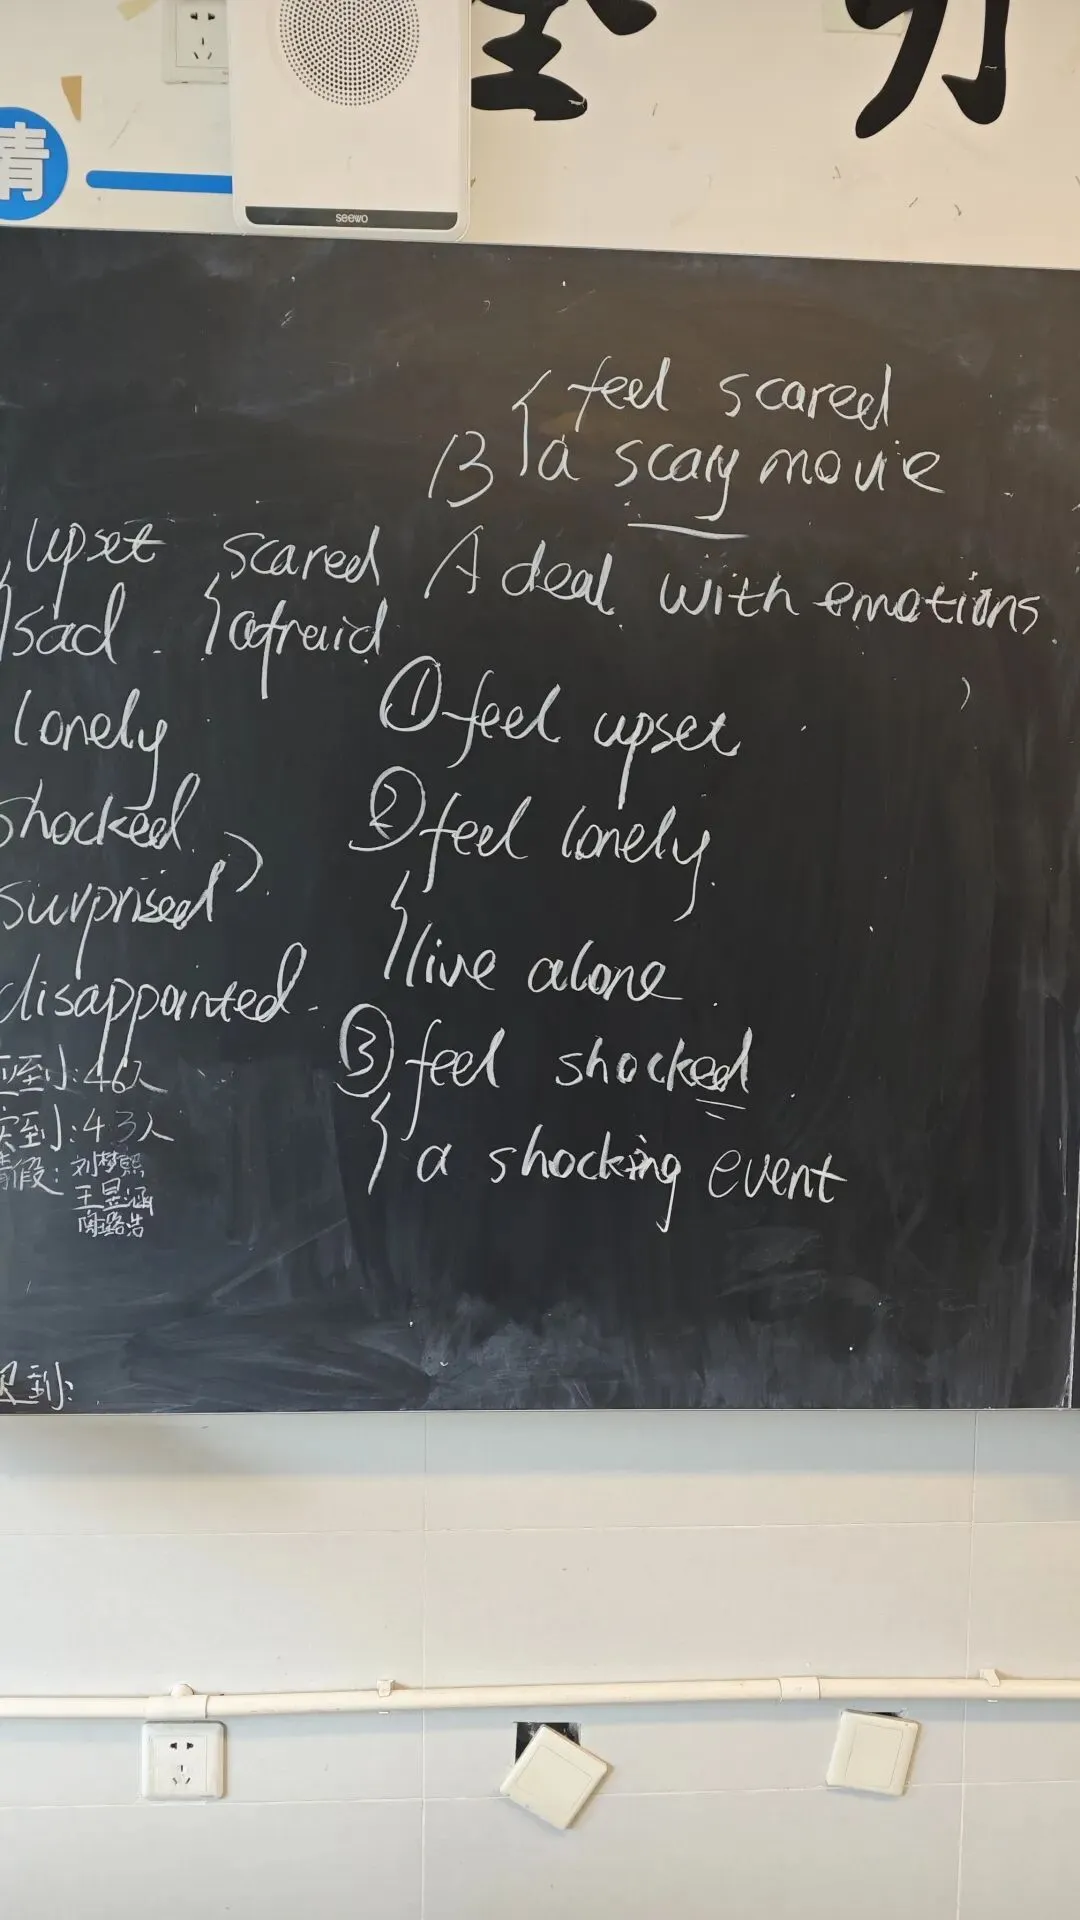 清
seewo
feel scared
B a scary movie
upset scared A deal with emotions.
sad. afraid
① feel upset
lonely
② feel lonely.
shocked.
surprised
live alone.
disappointed.
③ feel shocked.
应到:46人
实到:43人
a shocking event
请假:刘梦熙
王昱涵
迟到: